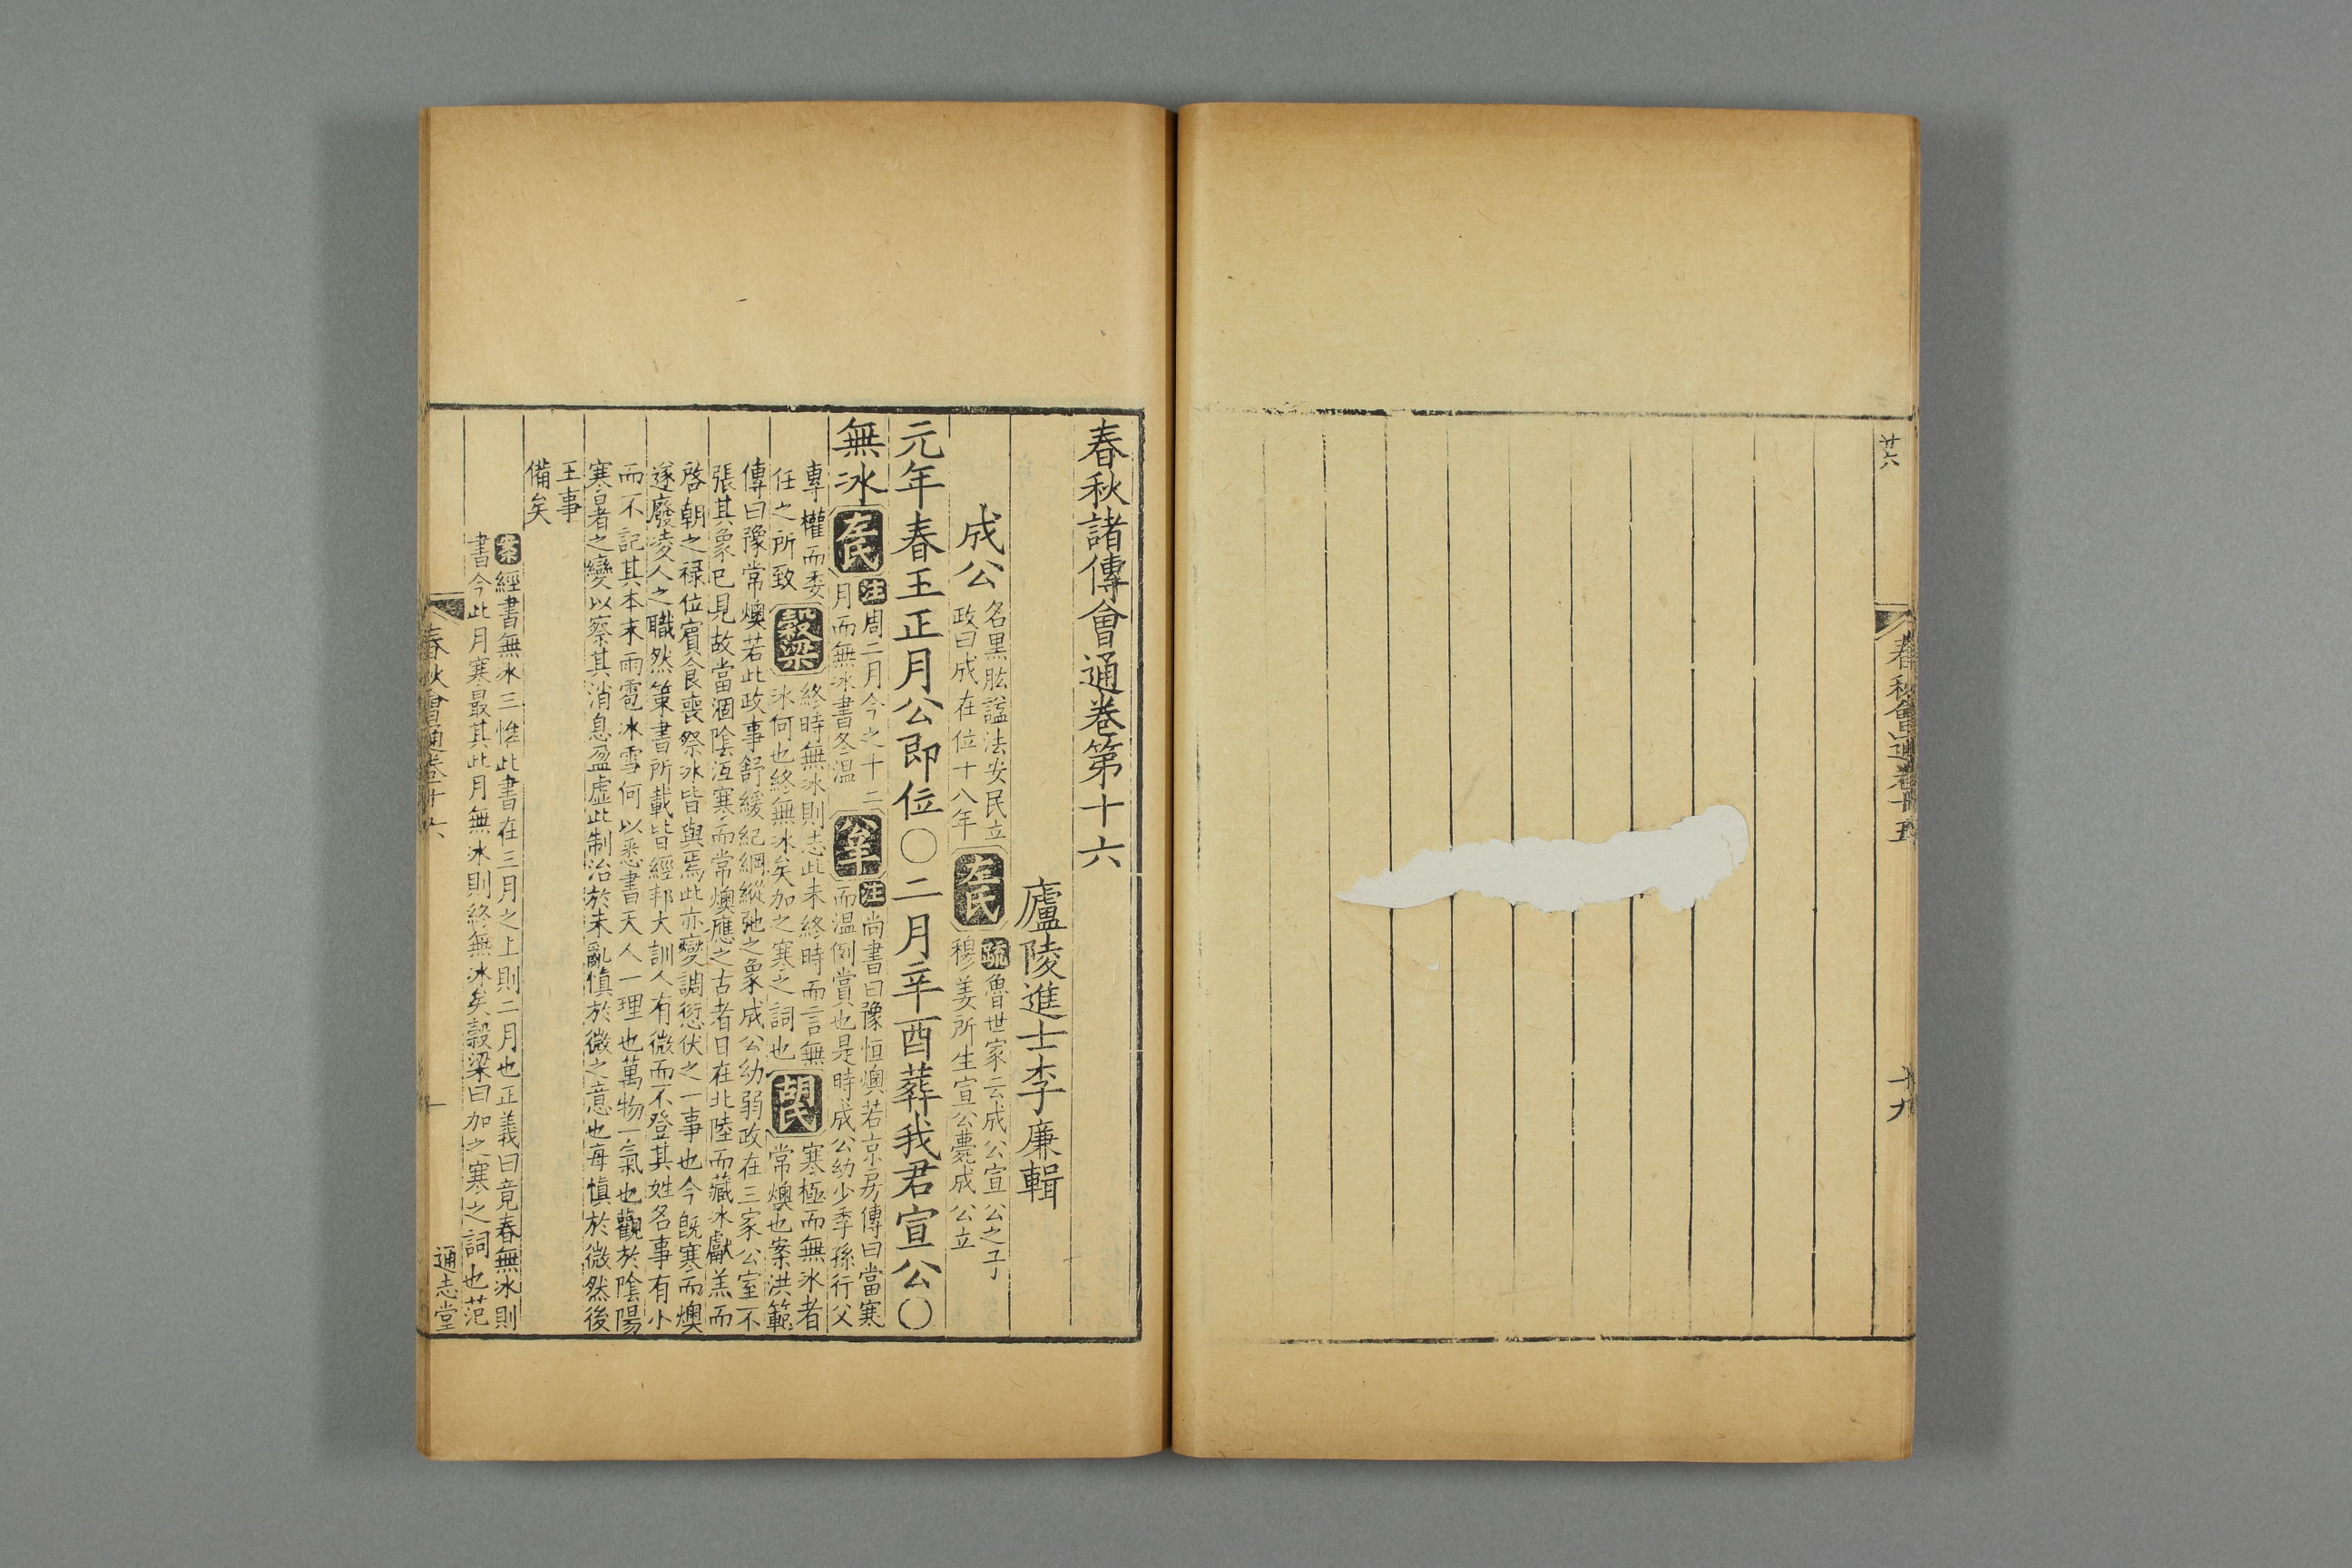 廿六
春秋會通卷十五
十九
春秋諸傳會通卷第十六
廬陵進士李廉輯
成公
名黑肱諡法安民立
政曰成在位十八年
左氏
疏
魯世家云成公宣公之子
穆姜所生宣公薨成公立
元年春王正月公即位〇二月辛酉葬我君宣公〇
無冰
左氏
注
周二月今之十二
月而無冰書冬温
公羊
注
尚書曰豫恒燠若京房傳曰當寒
而温例賞也是時成公幼少季孫行父
專權而委
任之所致
穀梁
終時無冰則志此未終時而言無
冰何也終無冰矣加之寒之詞也
胡氏
寒極而無冰者
常燠也案洪範
傳曰豫常燠若此政事舒緩紀綱縱弛之象成公幼弱政在三家公室不
張其象已見故當涸陰沍寒而常燠應之古者日在北陸而藏冰獻羔而
啓朝之禄位賓食喪祭冰皆與焉此亦變調愆伏之一事也今既寒而燠
遂廢凌人之職然策書所載皆經邦大訓人有微而不登其姓名事有小
而不記其本末雨雹冰雪何以悉書天人一理也萬物一氣也觀於陰陽
寒暑之變以察其消息盈虛此制治於未亂慎於微之意也每慎於微然後
王事
備矣
案
經書無冰三惟此書在三月之上則二月也正義曰竟春無冰則
書今此月寒最甚此月無冰則終無冰矣穀梁曰加之寒之詞也范
春秋會通卷十六
一
通志堂